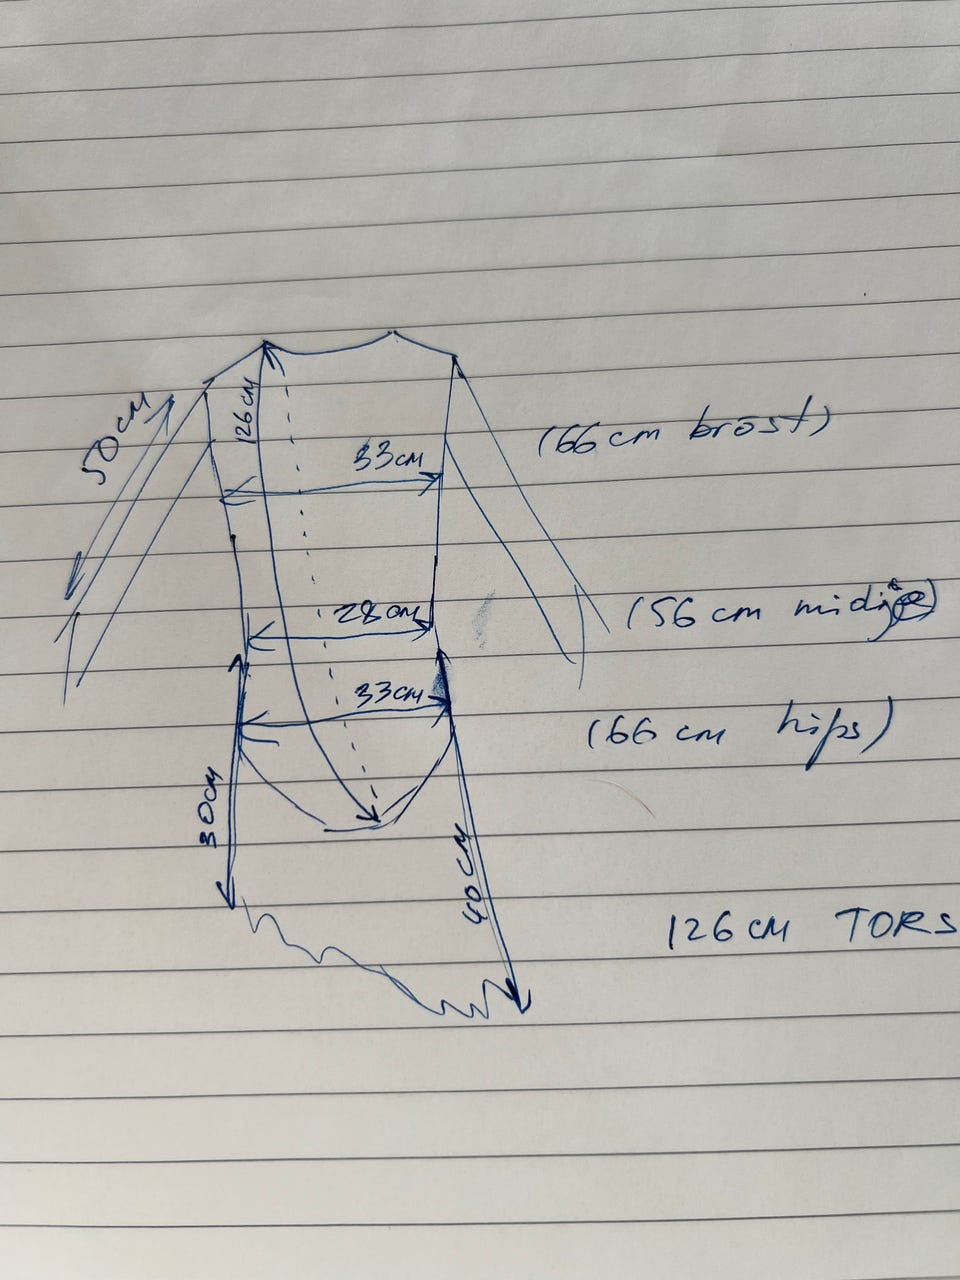 50 cm
126 cm
33 cm
(66 cm bröst)
28 cm
(56 cm midje)
33 cm
(66 cm hips)
30 cm
40 cm
126 cm TORS